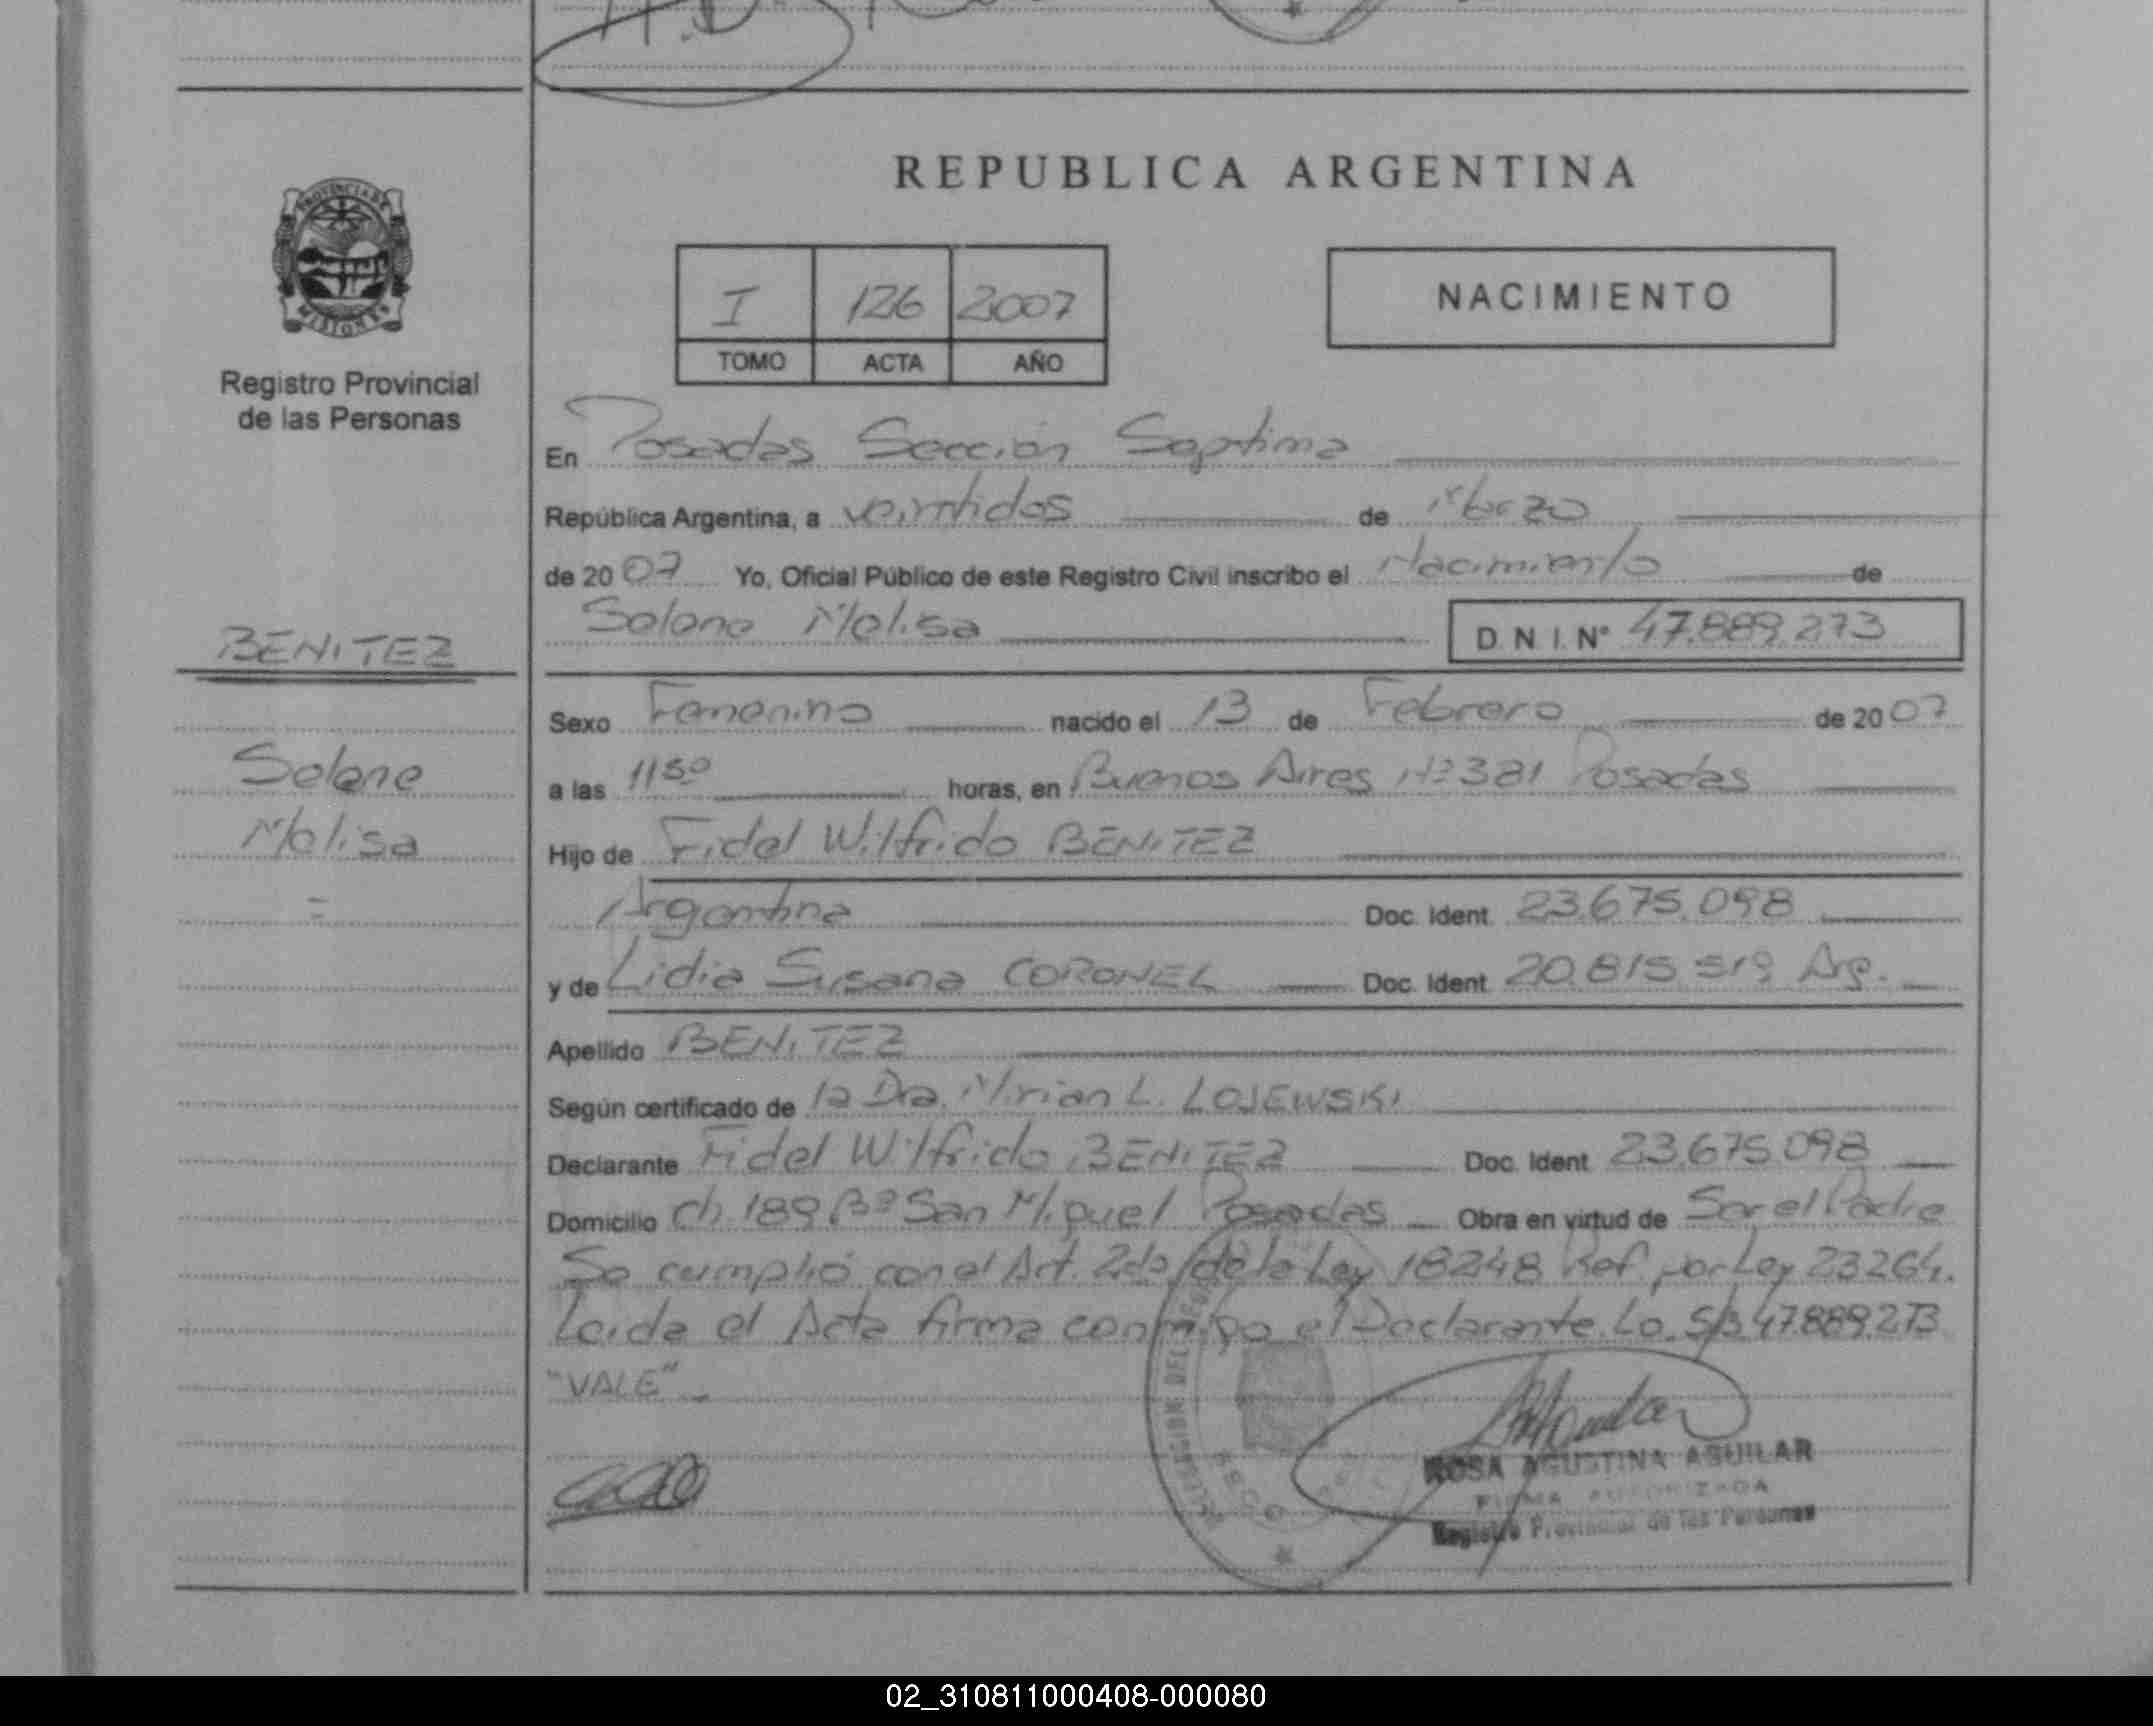 REPUBLICA ARGENTINA
PROVINCIA DE
MISIONES
Registro Provincial
de las Personas
I 126 2007
TOMO ACTA AÑO
NACIMIENTO
En Posadas Sección Septima
República Argentina, a veintidos de Marzo
de 2007 Yo, Oficial Público de este Registro Civil inscribo el Nacimiento de
Solane Melisa D.N.I. N° 47.889.273
BENITEZ
Solane
Melisa
=
Sexo Femenino nacido el 13 de Febrero de 2007
a las 1150 horas, en Buenos Aires Nº 381 Posadas
Hijo de Fidel Wilfrido BENITEZ
Argentina Doc. Ident. 23.675.098
y de Lidia Susana CORONEL Doc. Ident. 20.815.519 Arg.
Apellido BENITEZ
Según certificado de la Dra. Mirian L. LOJEWSKI
Declarante Fidel Wilfrido BENITEZ Doc. Ident. 23.675.098
Domicilio Ch. 189 Bº San Miguel Posadas Obra en virtud de Ser el Padre
Se cumplió con el Art. 2do de la Ley 18248 Ref. por Ley 23264.
Leida el Acta firma conmigo el Declarante. Lo S/B 47.889.273
"VALE"
ROSA AGUSTINA AGUILAR
FIRMA AUTORIZADA
Registro Provincial de las Personas
02_310811000408-000080